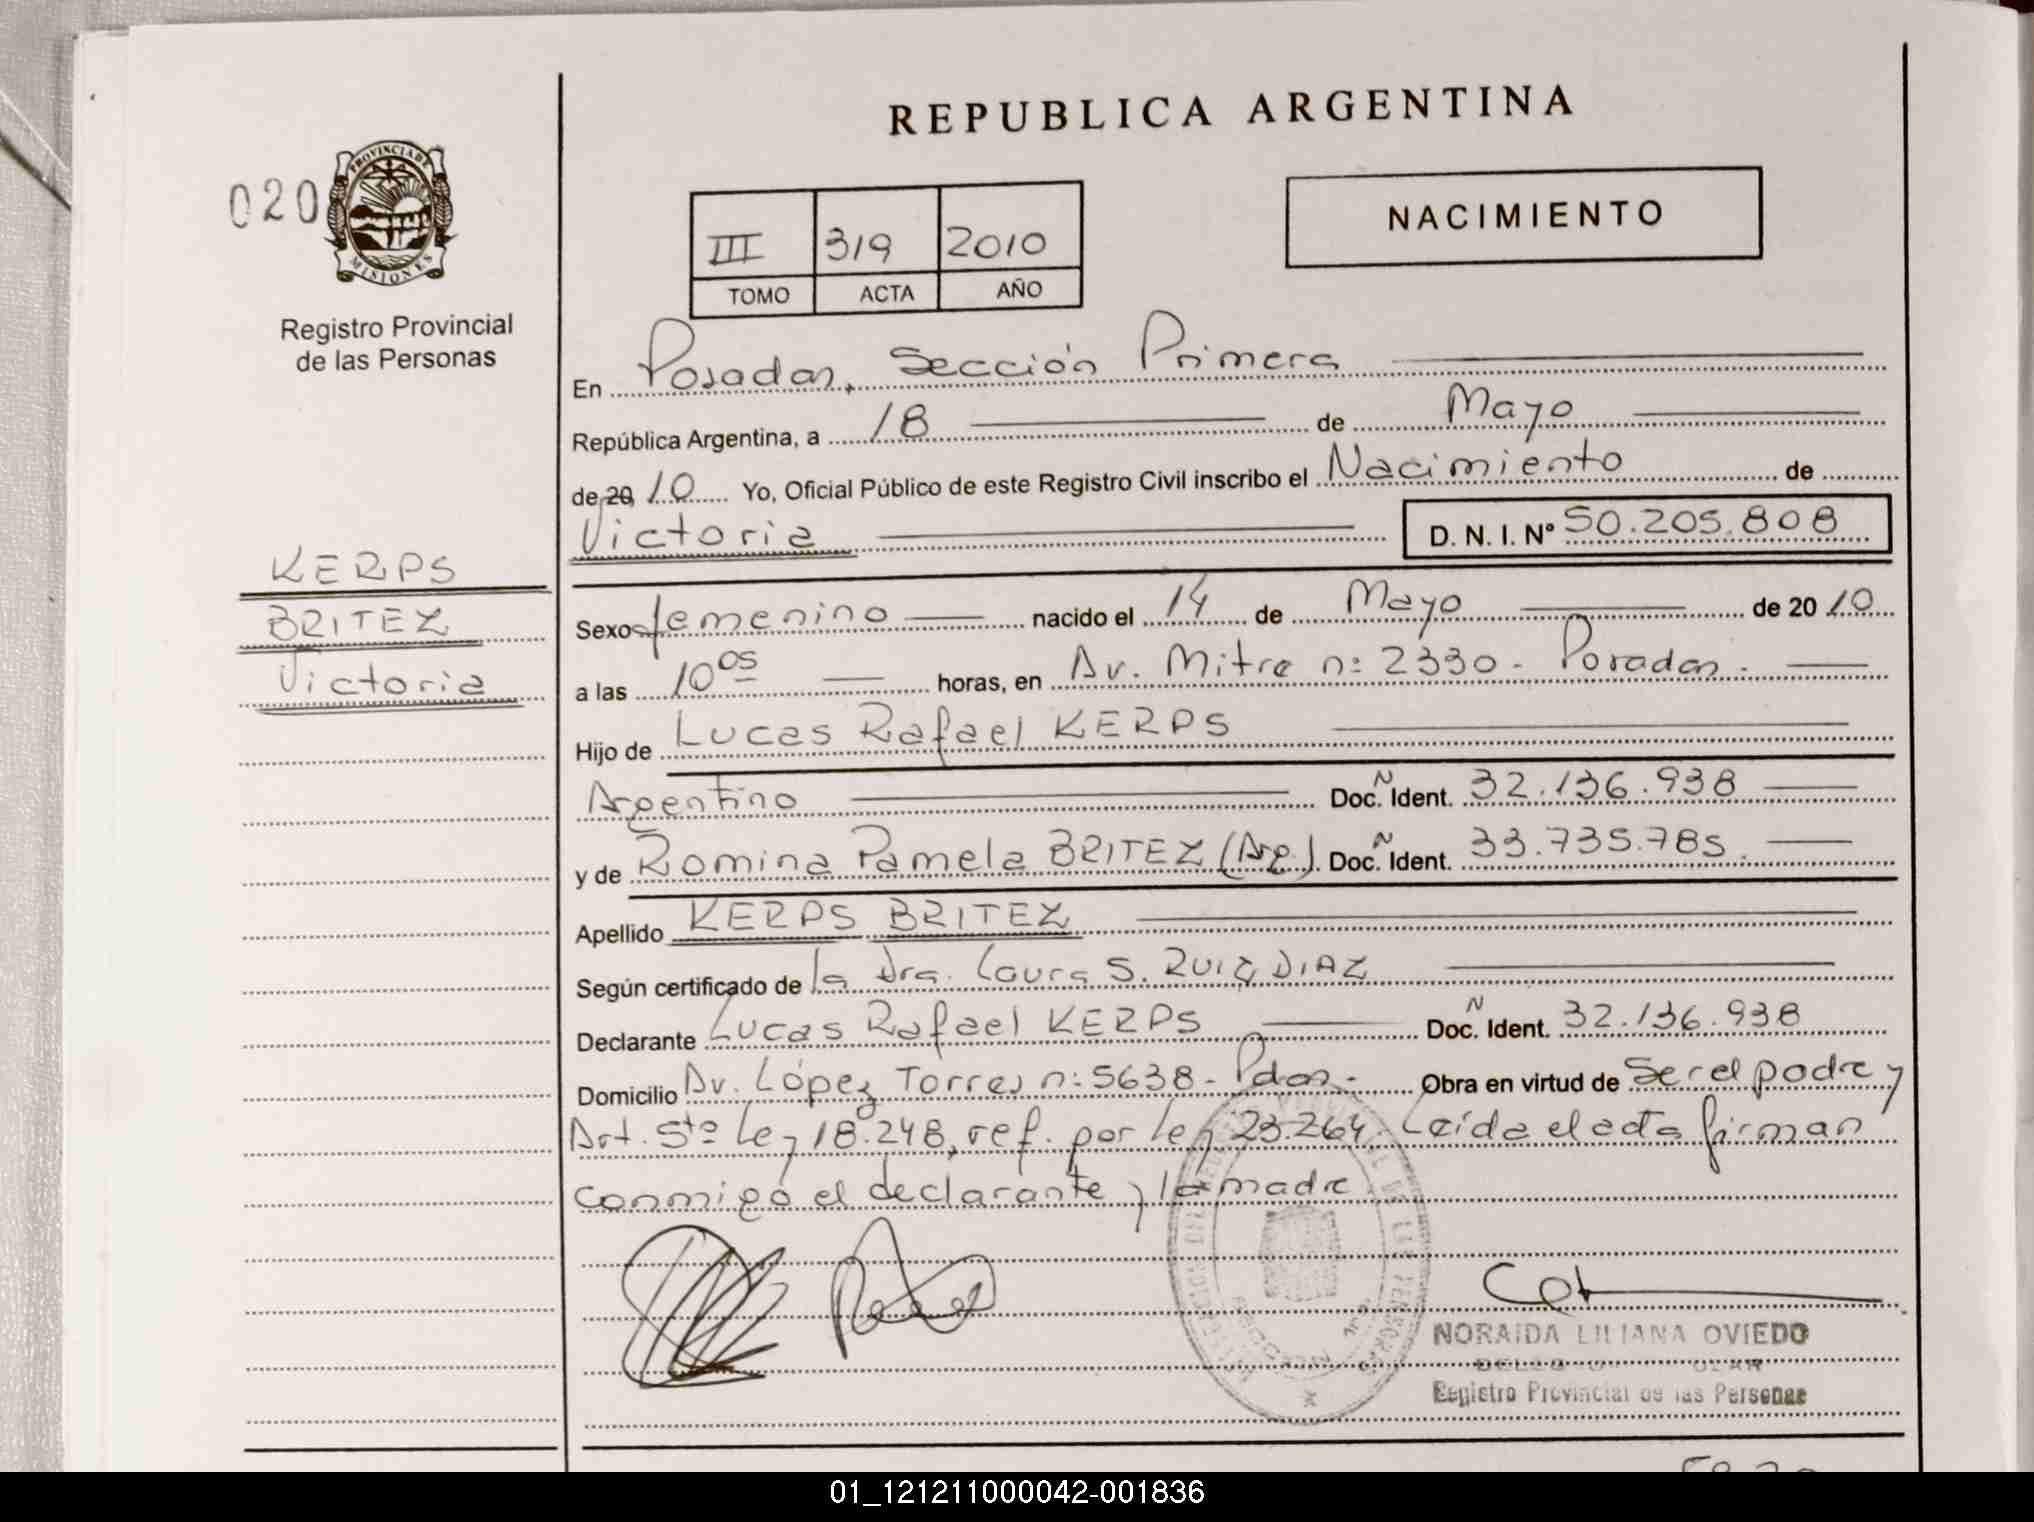 REPUBLICA ARGENTINA
020
PROVINCIA DE
MISIONES
Registro Provincial
de las Personas
III 319 2010
TOMO ACTA AÑO
NACIMIENTO
En Posadas, Sección Primera
República Argentina, a 18 de Mayo
de 20 10 Yo, Oficial Público de este Registro Civil inscribo el Nacimiento de
Victoria D. N. I. Nº 50.205.808
KERPS
BRITEZ
Victoria
Sexo femenino nacido el 14 de Mayo de 20 10
a las 10 05 horas, en Av. Mitre nº 2330 - Posadas.
Hijo de Lucas Rafael KERPS
Argentino Doc. N Ident. 32.136.938
y de Romina Pamela BRITEZ (Arg.). Doc. N Ident. 33.735.785.
Apellido KERPS BRITEZ
Según certificado de la Dra. Laura S. RUIZ DIAZ
Declarante Lucas Rafael KERPS Doc. N Ident. 32.136.938
Domicilio Av. López Torres nº 5638 - Pdas. Obra en virtud de Ser el padre y
Art. 5to Ley 18.248, ref. por Ley 23.264. Leída el acta firman
conmigo el declarante y la madre
NORAIDA LILIANA OVIEDO
Registro Provincial de las Personas
01_121211000042-001836